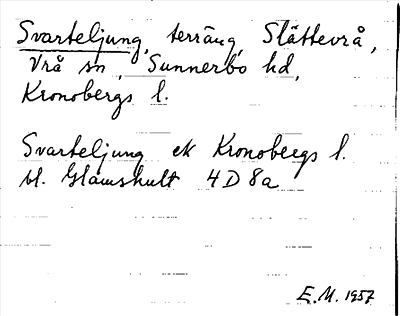 Svarteljung, terräng, Slättevrå,
Vrå sn, Sunnerbo hd,
Kronobergs l.
Svarteljung ek Kronobergs l.
bl. Glamshult 4D8a
E.M. 1957